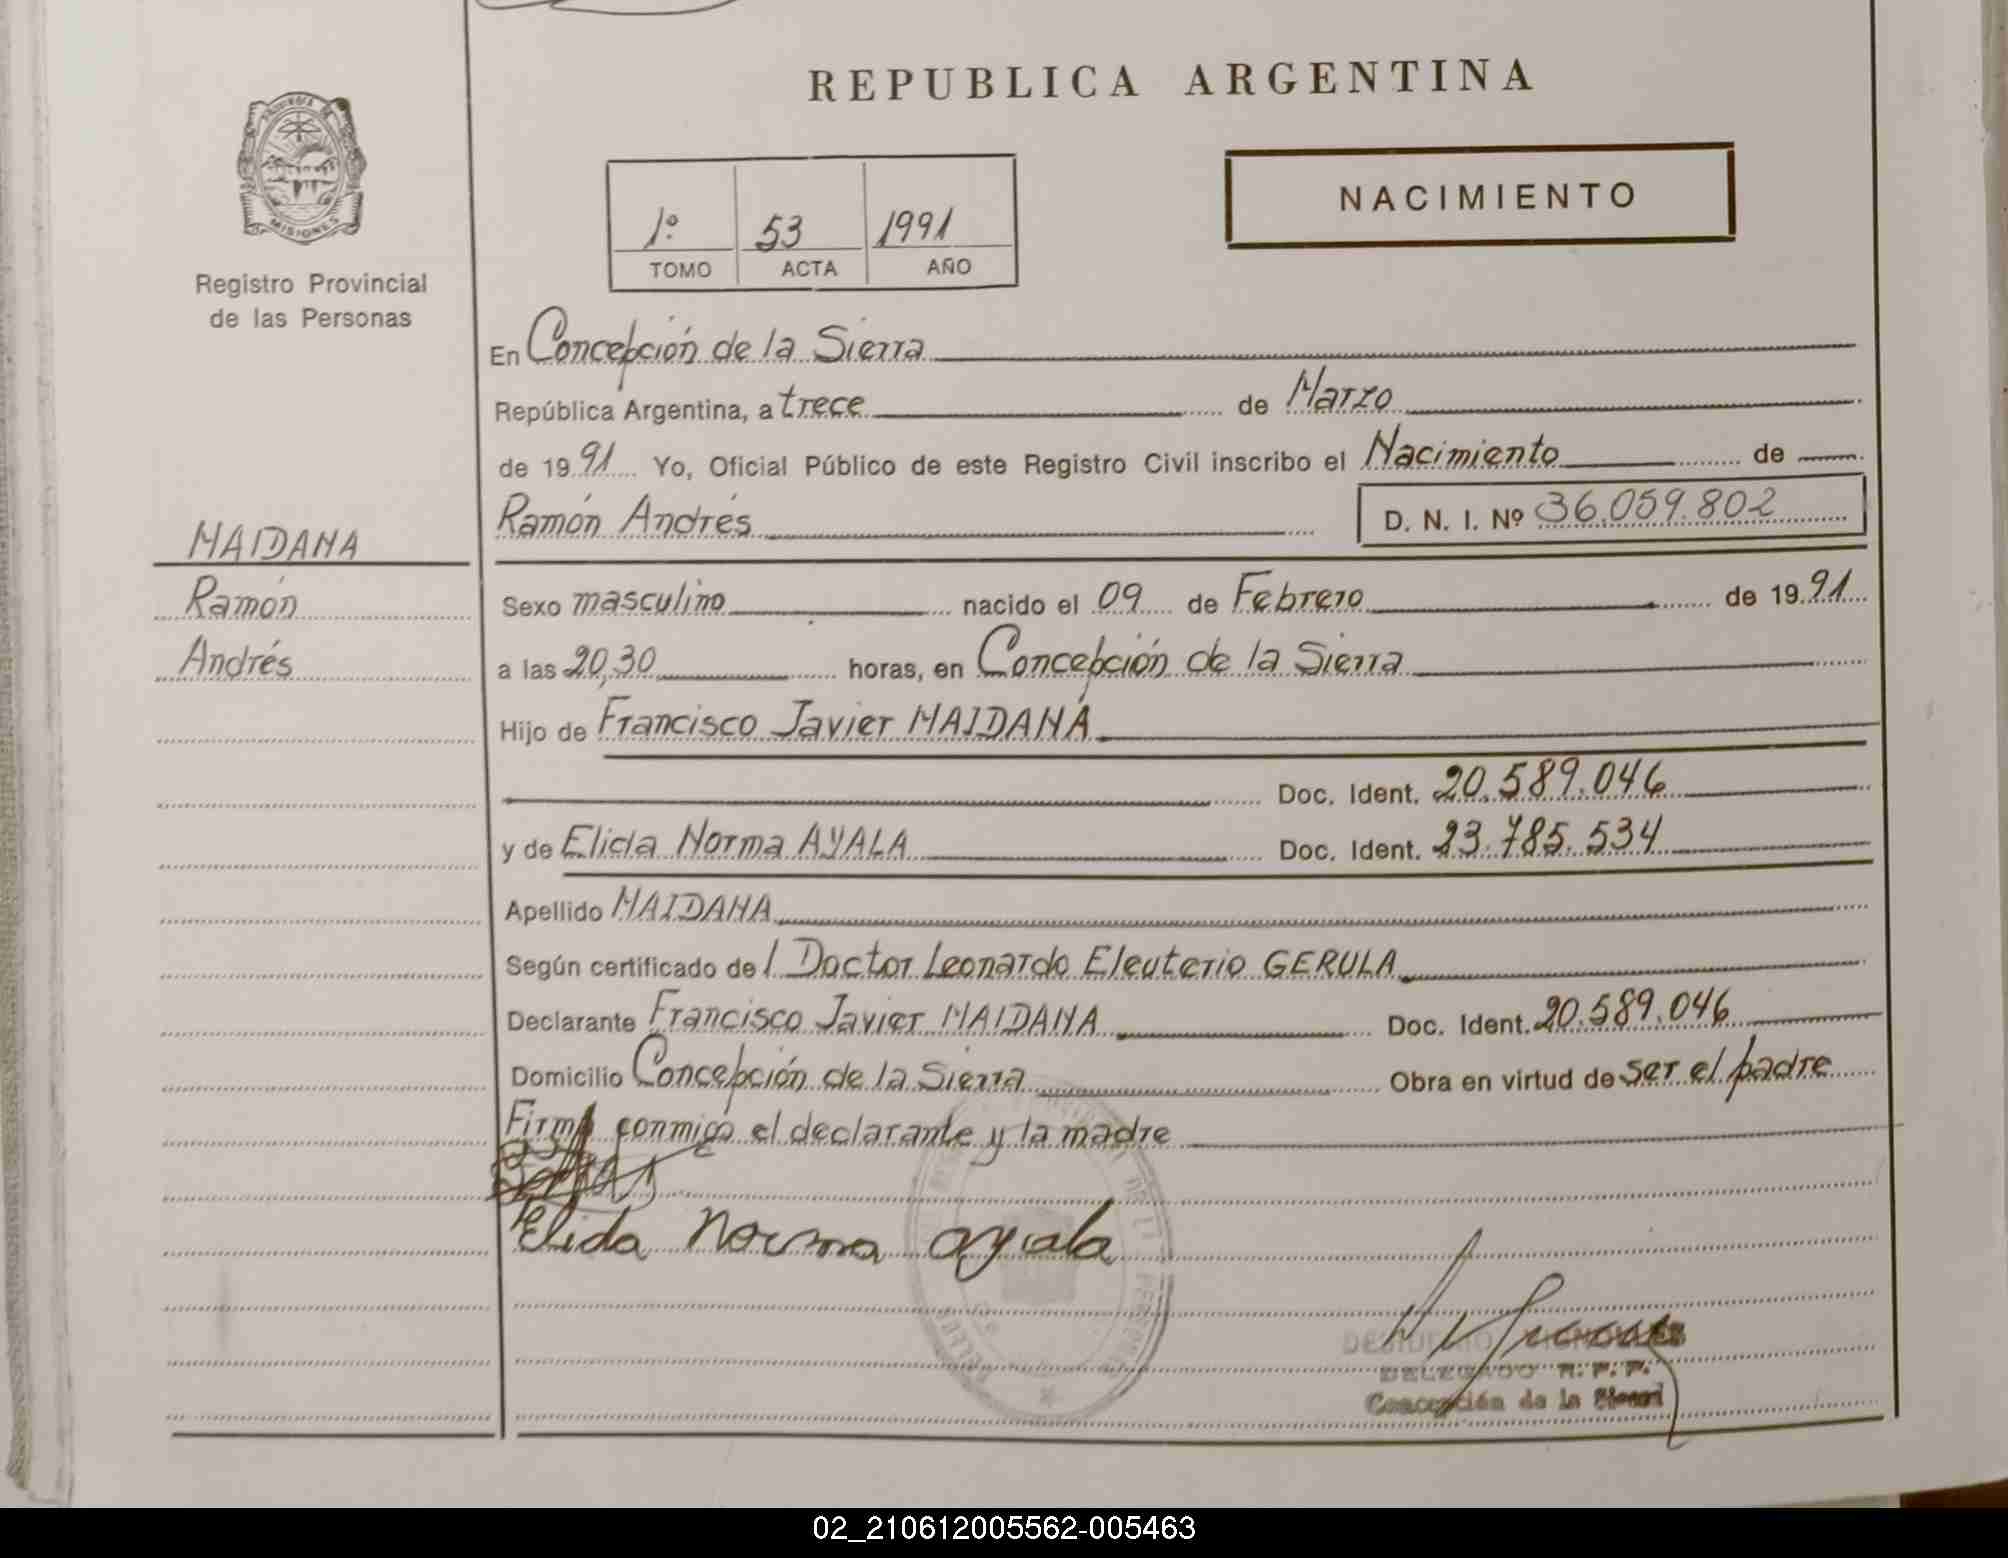 REPUBLICA ARGENTINA
PROVINCIA DE
MISIONES
Registro Provincial
de las Personas
NACIMIENTO
1º 53 1991
TOMO ACTA AÑO
En Concepción de la Sierra
República Argentina, a trece de Marzo
de 1991 Yo, Oficial Público de este Registro Civil inscribo el Nacimiento de
Ramón Andrés D. N. I. Nº 36.059.802
MAIDANA
Ramón
Andrés
Sexo masculino nacido el 09 de Febrero de 1991
a las 20,30 horas, en Concepción de la Sierra
Hijo de Francisco Javier MAIDANA
Doc. Ident. 20.589.046
y de Elida Norma AYALA Doc. Ident. 23.785.534
Apellido MAIDANA
Según certificado del Doctor Leonardo Eleuterio GERULA
Declarante Francisco Javier MAIDANA Doc. Ident. 20.589.046
Domicilio Concepción de la Sierra Obra en virtud de ser el padre
Firma conmigo el declarante y la madre
Elida Norma ayala
DELEGADO R. P. P.
Concepción de la Sierra
02_210612005562-005463